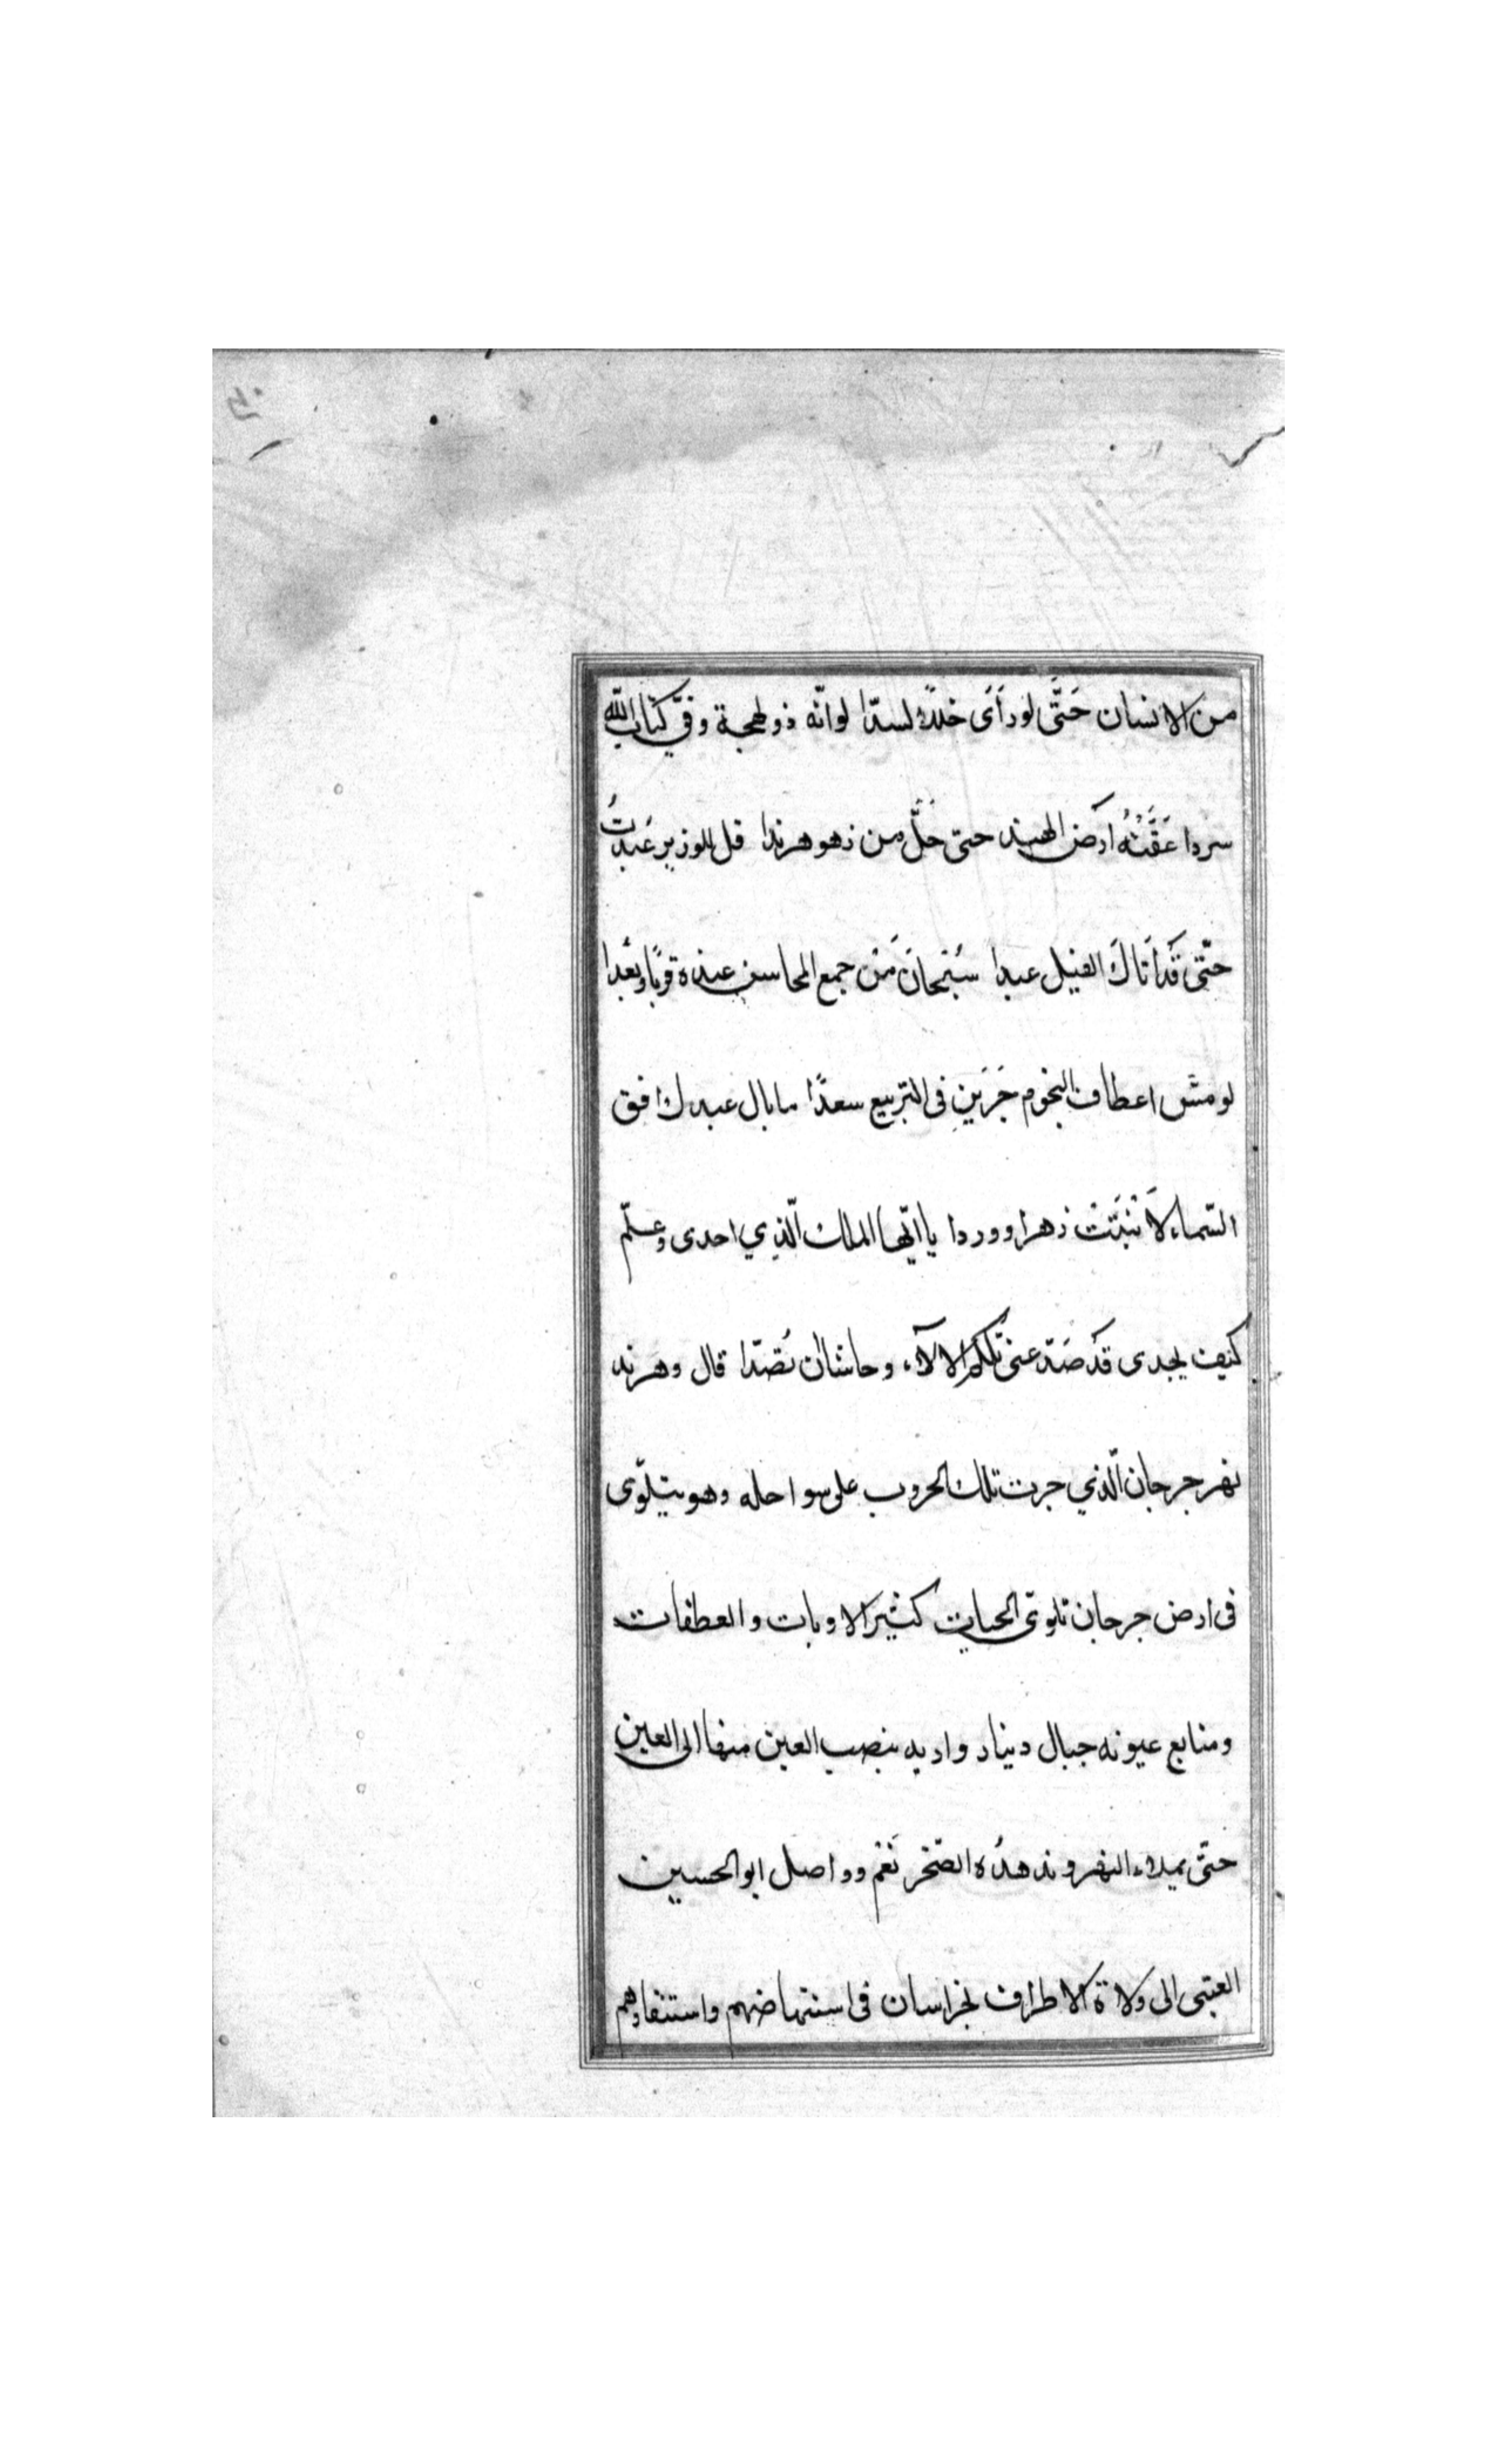 من الانسان حَتَّى لورَأَى خللاً لسدّا لوانّه ذو لهجة وفىّ كتاب الله
سردا عَقَّتْهُ ارَض الهند حتى حَلَّ من زهو هرندا قل للوزير عَبَدتُ
حتّى قَداَتاكَ الفيل عبدا سُبْحانَ مَنْ جمع المحاسن عنده قربًا وبُعْدا
لو مسَّ اعطاف النجوم جَرَين فى التربيع سعدًا ما بال عبدك افق
السّماء لاَ نْبَتَتْ زهرا ووردا يا ايّها الملك الّذي احدى وعلّم
كيف يجدى قَد صَدّ عنى تلكم الالآء وحاشاان تُصَدّا قال وهرند
نهر جرجان الّذي جرت تلك الحروب على سواحله وهو يتلوّى
فى ارض جرجان تلوّى الحيات كثير الاوبات والعطفات
ومنابع عيونه جبال دينار واديه ينصب العين منها الى العين
حتّى يملاء النهر وندهدُه الصّخر نَعَمْ وواصل ابو الحسين
العتبى الى ولاة الاطراف بخراسان فى استنهاضهم واستنفارهم